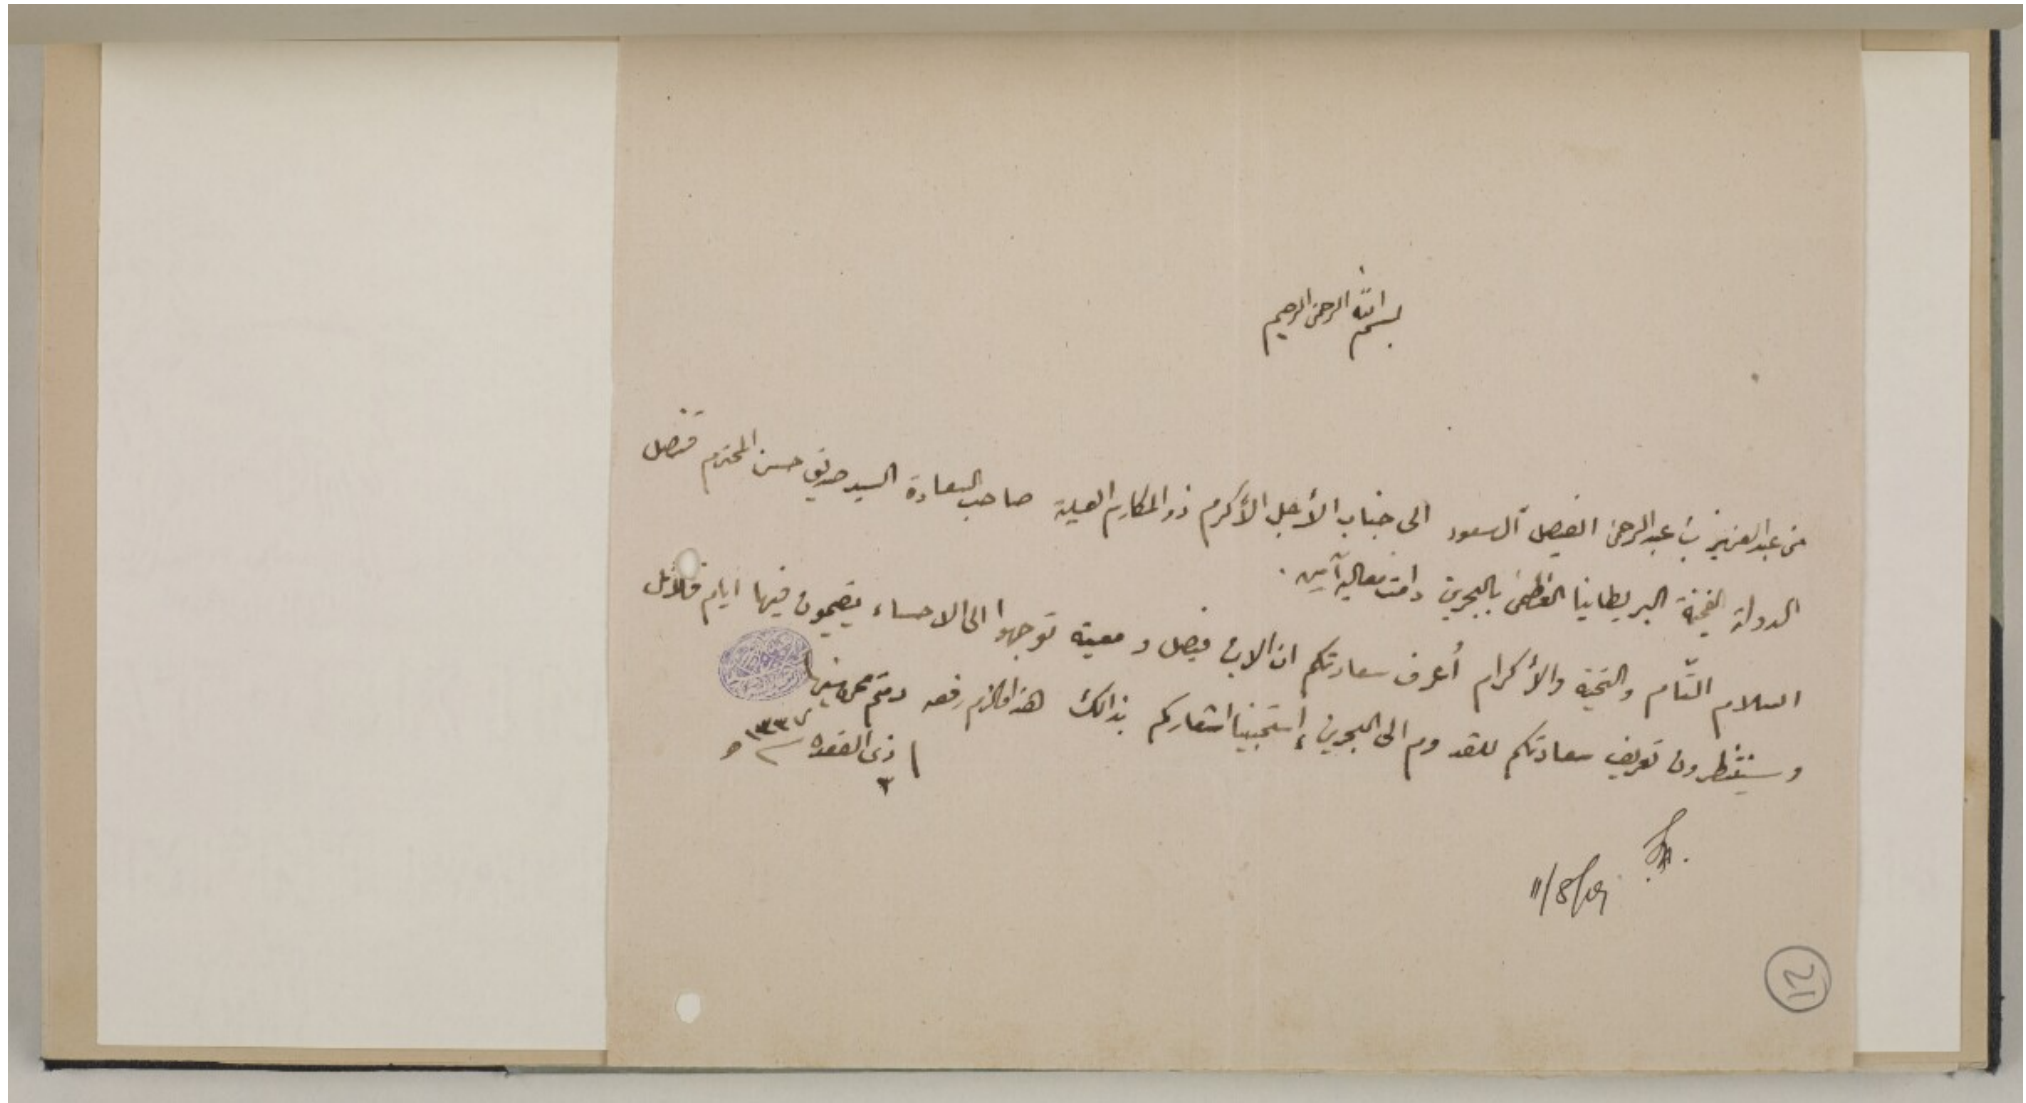 بسم الله الرحمن الرحيم
من عبد العزيز بن عبد الرحمن الفيصل آل سعود الى جناب الأجل الأكرم ذو المكارم العلية صاحب السعادة السيد صديق حسن المحترم قنصل
الدولة الفخيمة البريطانيا العظمى بالبحرين دامت معاليه آمين .
السلام التّام والتحية والأكرام أعرف سعادتكم ان الابن فيصل و معيته توجهوا الى الاحساء يقيمون فيها ايام قلائل
و سينتظرون تعريف سعادتكم للقدوم الى البحرين استحبينا اشعاركم بذالك هذا مالزم رفعه ودمتم محروسين
٣ ذى القعده ١٣٣٧ ھ
11/8/19
12